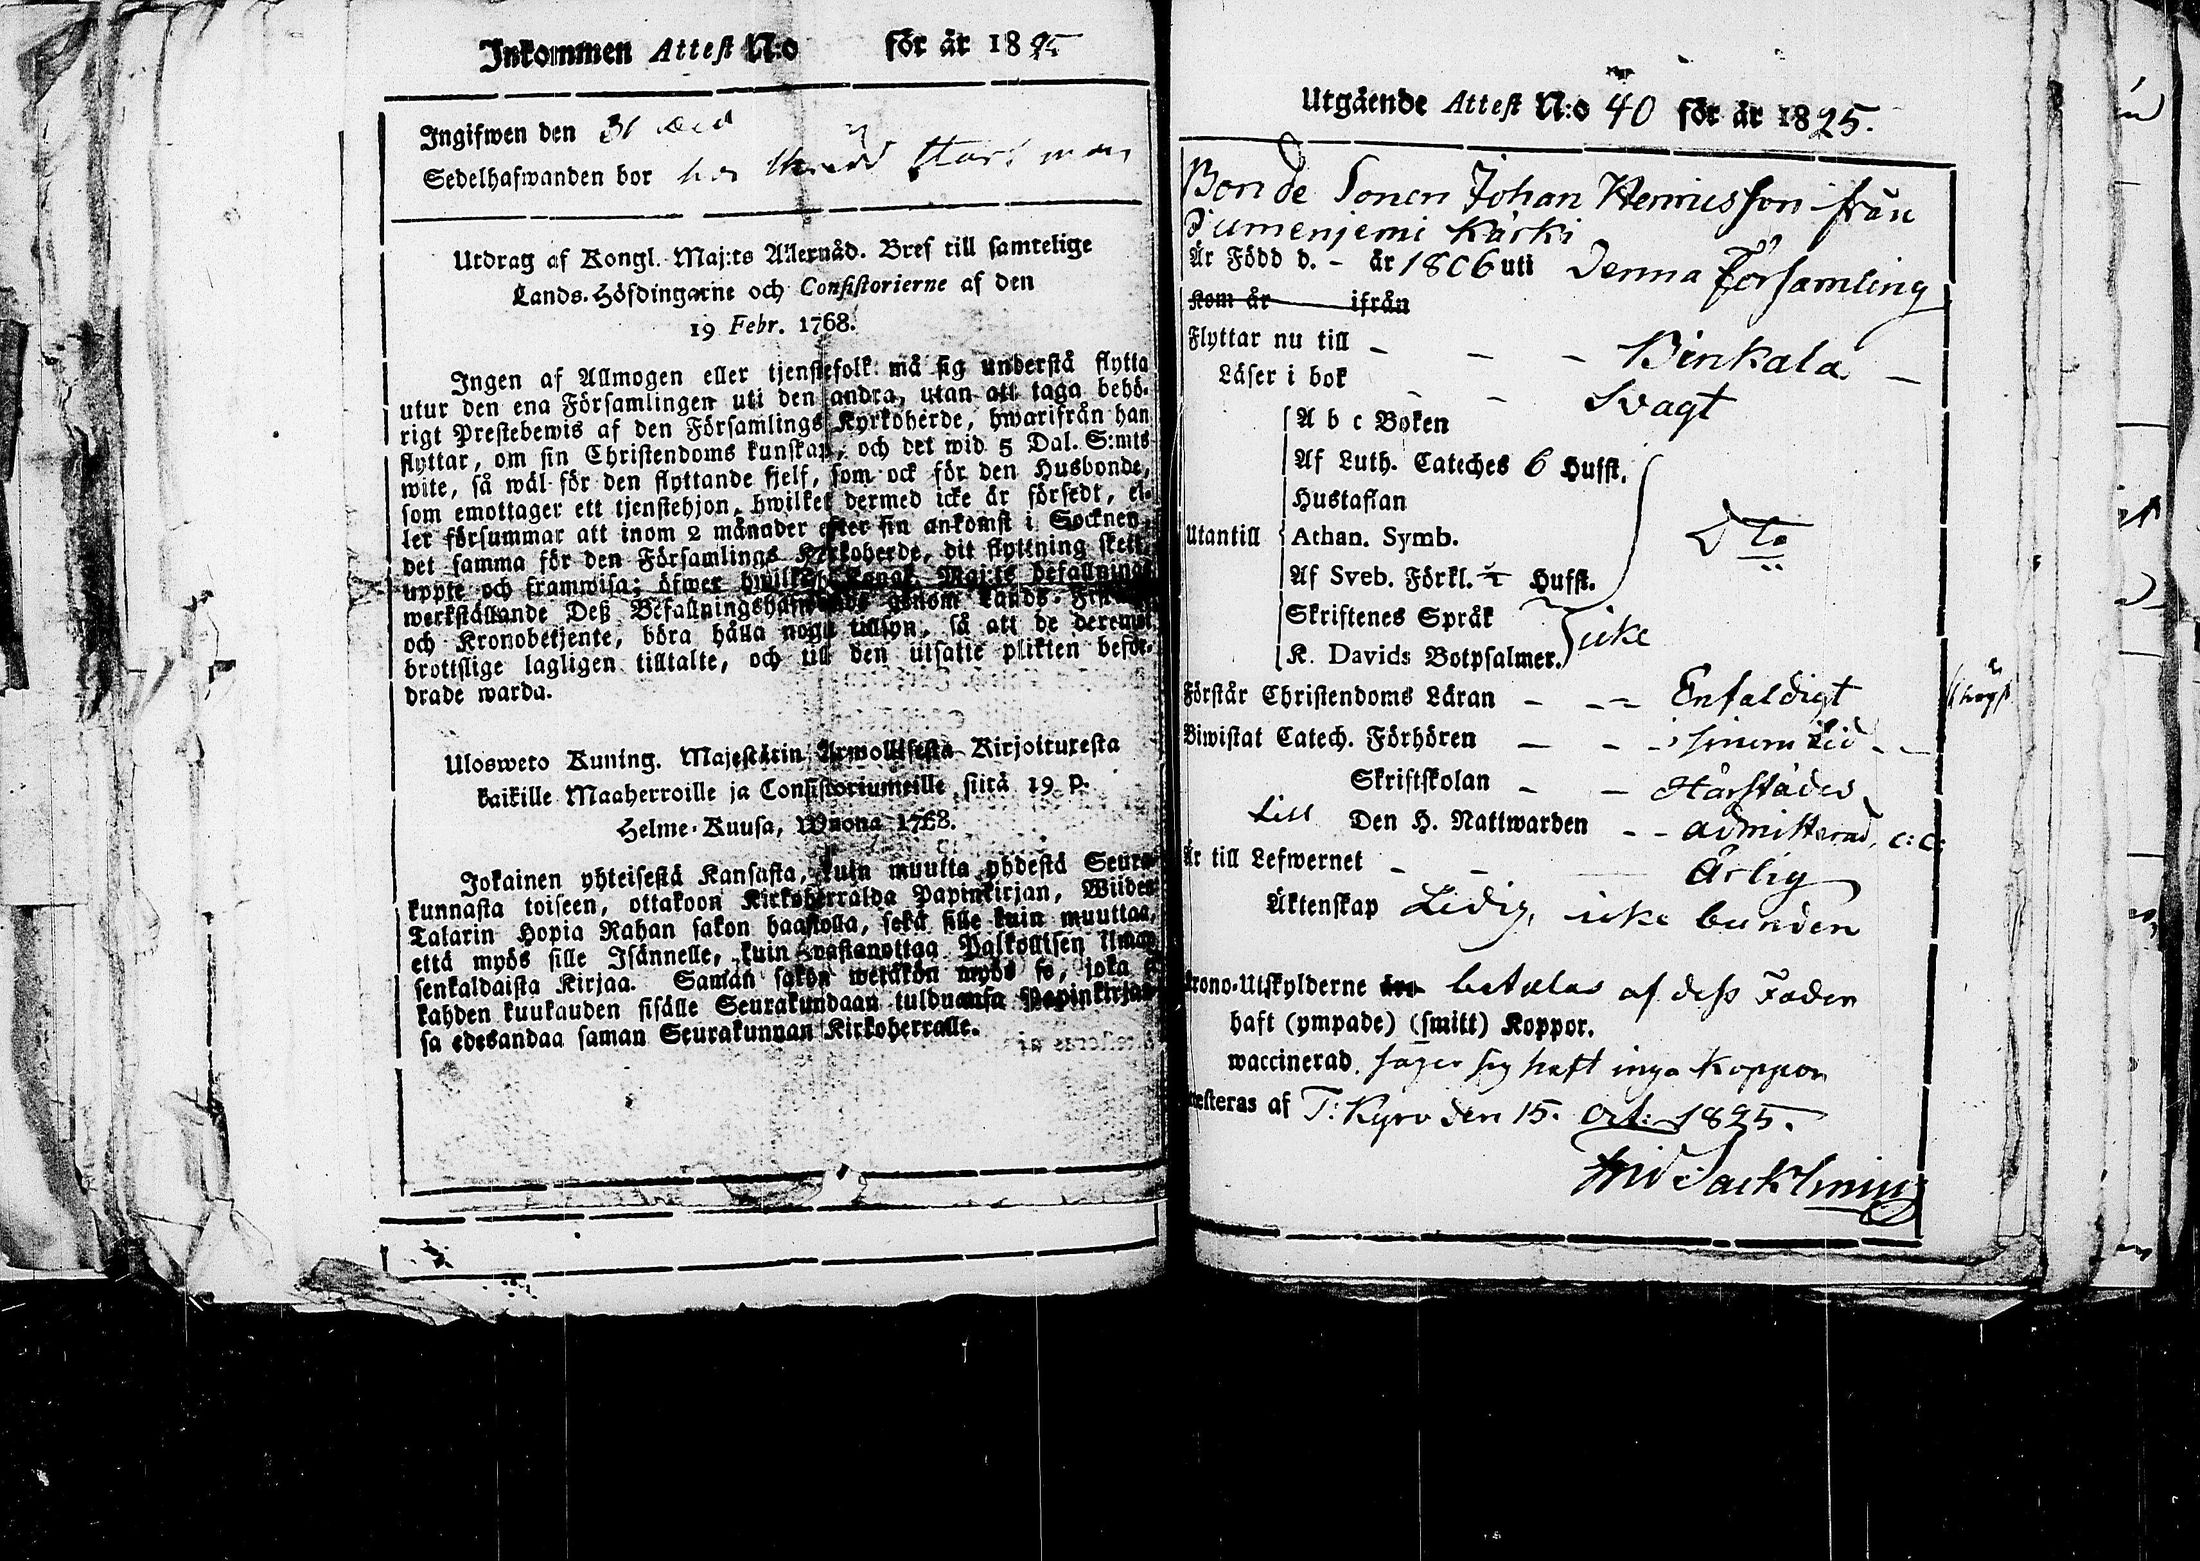 Inkommen Attest N:o för år 1825
Ingifwen den 31
Sedelhafwanden bor hos
Utdrag af Kongl. Maj:ts Allernåd. Bref till samtelige
Lands-Höfdingarne och Consistorierne af den
19 Febr. 1768.
Ingen af Allmogen eller tjenstefolk må sig understå flytta
utur den ena Församlingen uti den andra, utan att taga behö-
rigt Prestebewis af den Församlings Kyrkoherde, hwarifrån han
flyttar, om sin Christendoms kunskap, och det wid 5 Dal. S:mts
wite, så wäl för den flyttande sjelf, som ock för den Husbonde,
som emottager ett tjenstehjon, hwilket dermed icke är försedt, el-
ler försummar att inom 2 månader efter sin ankomst i Socknen,
det samma för den Församlings Kyrkoherde, dit flyttning skett,
uppte och framwisa; öfwer hwilket Kongl. Maj:ts befallnings
werkställande Deß Befallningshafwande genom Lands-
och Kronobetjente, böra hålla noga tillsyn, så att de deremot
brottslige lagligen tilltalte, och till den utsatte plikten beför-
drade warda.
Ulosweto Kuning. Majestätin Armollisesta Kirjoituxesta
kaikille Maaherroille ja Consistoriumeille, siitä 19 p.
Helme-Kuusa, Wuona 1768.
Jokainen yhteisestä Kansasta, kuin muutta yhdestä Seura-
kunnasta toiseen, ottakoon Kirkoherralda Papinkirjan, Wiiden
Talarin Hopia Rahan sakon haastolla, sekä sille kuin muuttaa,
että myös sille Isännelle, kuin wastanottaa Palkollisen ilman
senkaldaista Kirjaa. Saman sakon wetäkön myös se, joka
kahden kuukauden sisälle Seurakundaan tulduansa Papinkirjan-
sa edesandaa saman Seurakunnan Kirkoherralle.
Utgående Attest N:o 40 för år 1825.
Bonde Sonen Johan Henricsson från
Jumenjemi Kärki
Är Född d. - år 1806 uti denna Församling
Kom år ifrån
Flyttar nu till - - - Birkala -
Läser i bok - - Svagt
A b c Boken
Af Luth. Cateches 6 Hufst.
Hustaflan
Utantill Athan. Symb. Dto
Af Sveb. Förkl. Hufst.
Skriftenes Språk
K. Davids Botpsalmer. icke
Förstår Christendoms Läran - - - Enfaldigt
Biwistat Catech. Förhören - - i sinom tid - -
Skriftskolan - - Härstädes
till Den H. Nattwarden - - admitterad,
Är till Lefwernet - - Ärlig
Äktenskap Ledig, icke bunden
Krono-Utskylderne äro betalas af dess Fader
haft (ympade) (smitt) Koppor.
waccinerad. säger sig haft inga Koppor
Attesteras af T: Kyro den 15. Oct: 1825.